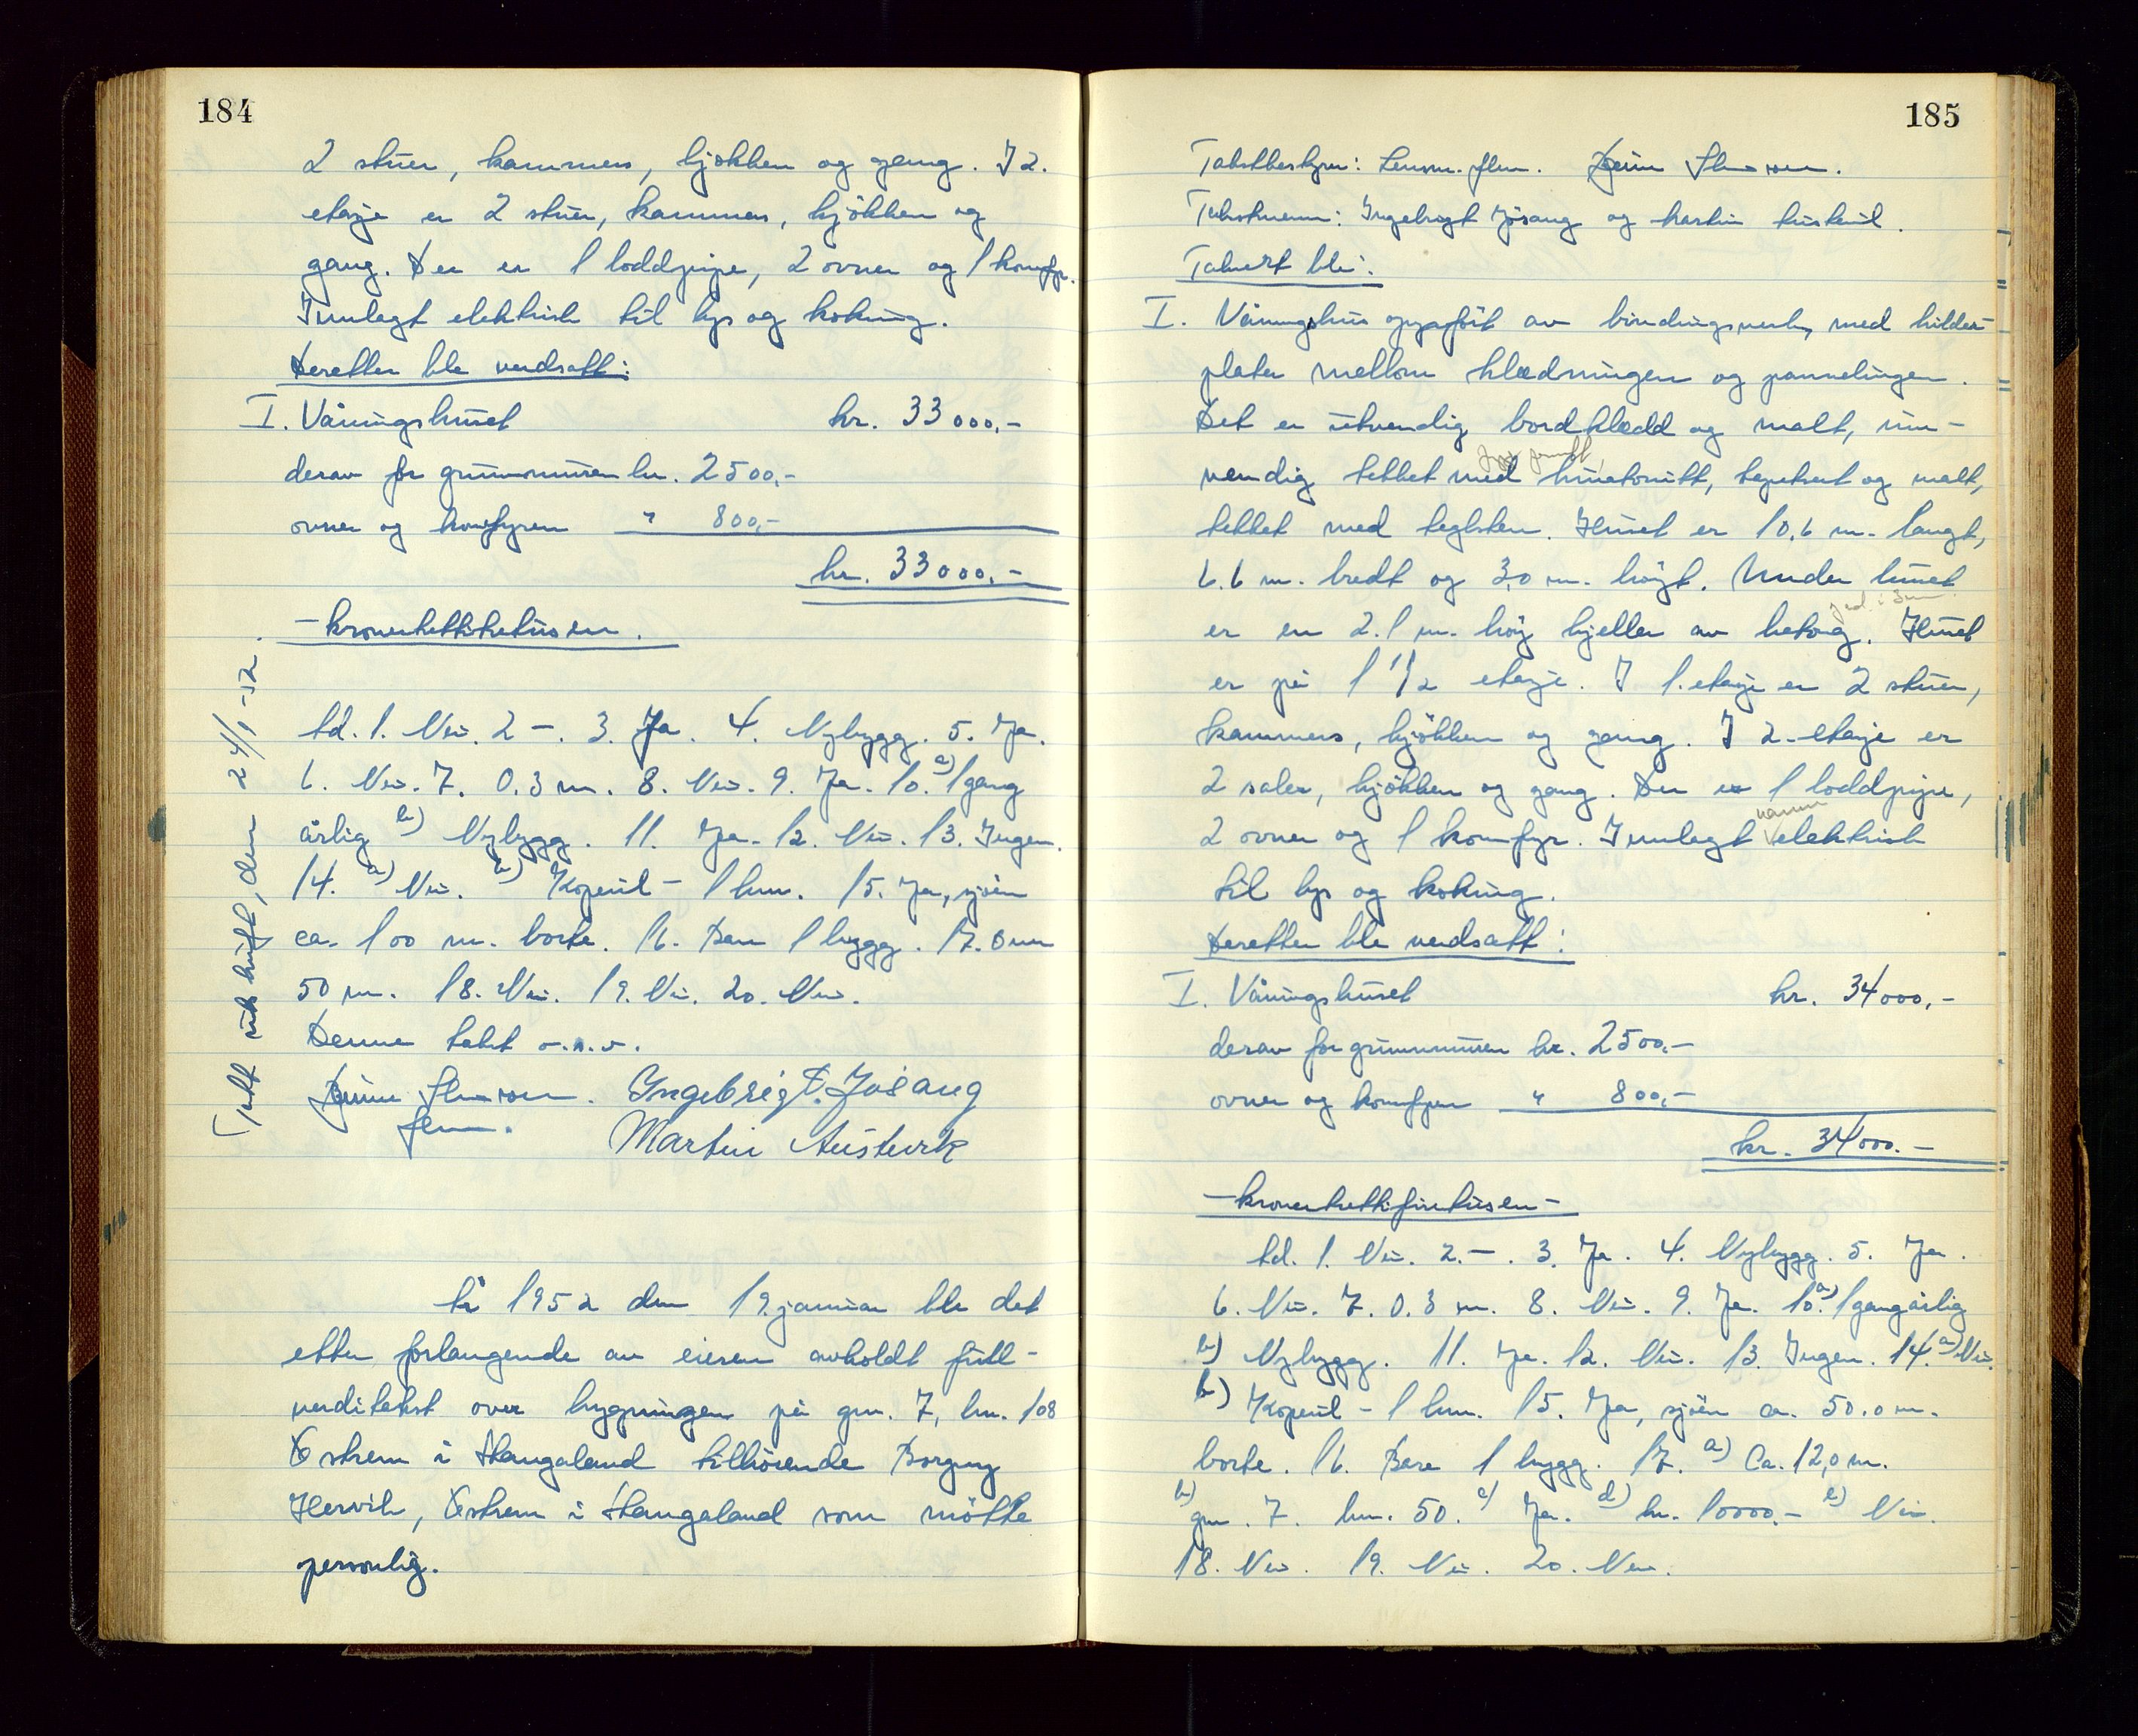 184
2 stuer, kammers, kjøkken og gang. I 2.
etasje er 2 stuer, kammers, kjøkken og
gang. Der er 1 loddpipe, 2 ovner og 1 komfyr.
Innlagt elektrisk til lys og koking.
Deretter ble verdsatt:
I. Våningshuset kr. 33000,-
derav for grunnmuren kr. 2500,-
ovner og komfyren " 800,-
kr. 33000.-
-kronertrettitretusen.
td. 1. Nei. 2 -. 3. Ja. 4. Nybygg. 5. Ja.
6. Nei. 7. 0.3 m. 8. Nei. 9. Ja. 10. a) 1 gang
årlig b) Nybygg. 11. Ja. 12. Nei. 13. Ingen.
14. a) Nei. b) Kopervik - 1 km. 15. Ja, sjøen
ca. 100 m. borte. 16. Bare 1 bygg. 17. Over
50 m. 18. Nei. 19. Nei. 20. Nei.
Denne takst o.s.v.
Ingebrigt. Jøsang
Martin Austevik
Tatt utskrift, den 24/1-52.
År 1952 den 19. januar ble det
etter forlangende av eieren avholdt full-
verditakst over bygningen på gnr. 7, bnr. 108
Østrem i Skangaland tilhørende Borgny
Hervik, Østrem i Skangaland som møtte
personlig.
185
Takstbestyrer: Lensm. flm.
Takstmenn: Ingebrigt Jøsang og Martin Austevik.
Taksert ble:
I. Våningshus oppført av bindingsverk, med hilder-
plater mellom klædningen og pannelingen.
Det er utvendig bordklædd og malt, inn-
vendig tettet med huntonitt, tapetsert og malt,
tettet med teglsten. Huset er 10.6 m. langt,
6.6 m. bredt og 3,0 m. høyt. Under huset
er en 2.1 m. høy kjeller av betong. Huset
er på 1 1/2 etasje. I 1. etasje er 2 stuer,
kammers, kjøkken og gang. I 2. etasje er
2 saler, kjøkken og gang. Der er 1 loddpipe,
2 ovner og 1 komfyr. Innlagt vann elektrisk
til lys og koking.
Deretter ble verdsatt:
I. Våningshuset kr. 34000,-
derav for grunnmuren kr. 2500,-
ovner og komfyren " 800,-
kr. 34000.-
-kronertrettifiretusen-
td. 1. Nei. 2. -. 3. Ja. 4. Nybygg. 5. Ja.
6. Nei. 7. 0.3 m. 8. Nei. 9. Ja. 10. a) 1 gang årlig
b) Nybygg. 11. Ja. 12. Nei. 13. Ingen. 14. a) Nei.
b) Kopervik - 1 km. 15. Ja, sjøen ca. 50.0 m.
borte. 16. Bare 1 bygg. 17. a) Ca. 12,0 m.
b) gnr. 7. bnr. 50. c) Ja. d) kr. 10000.- e) Nei.
18. Nei. 19. Nei. 20. Nei.